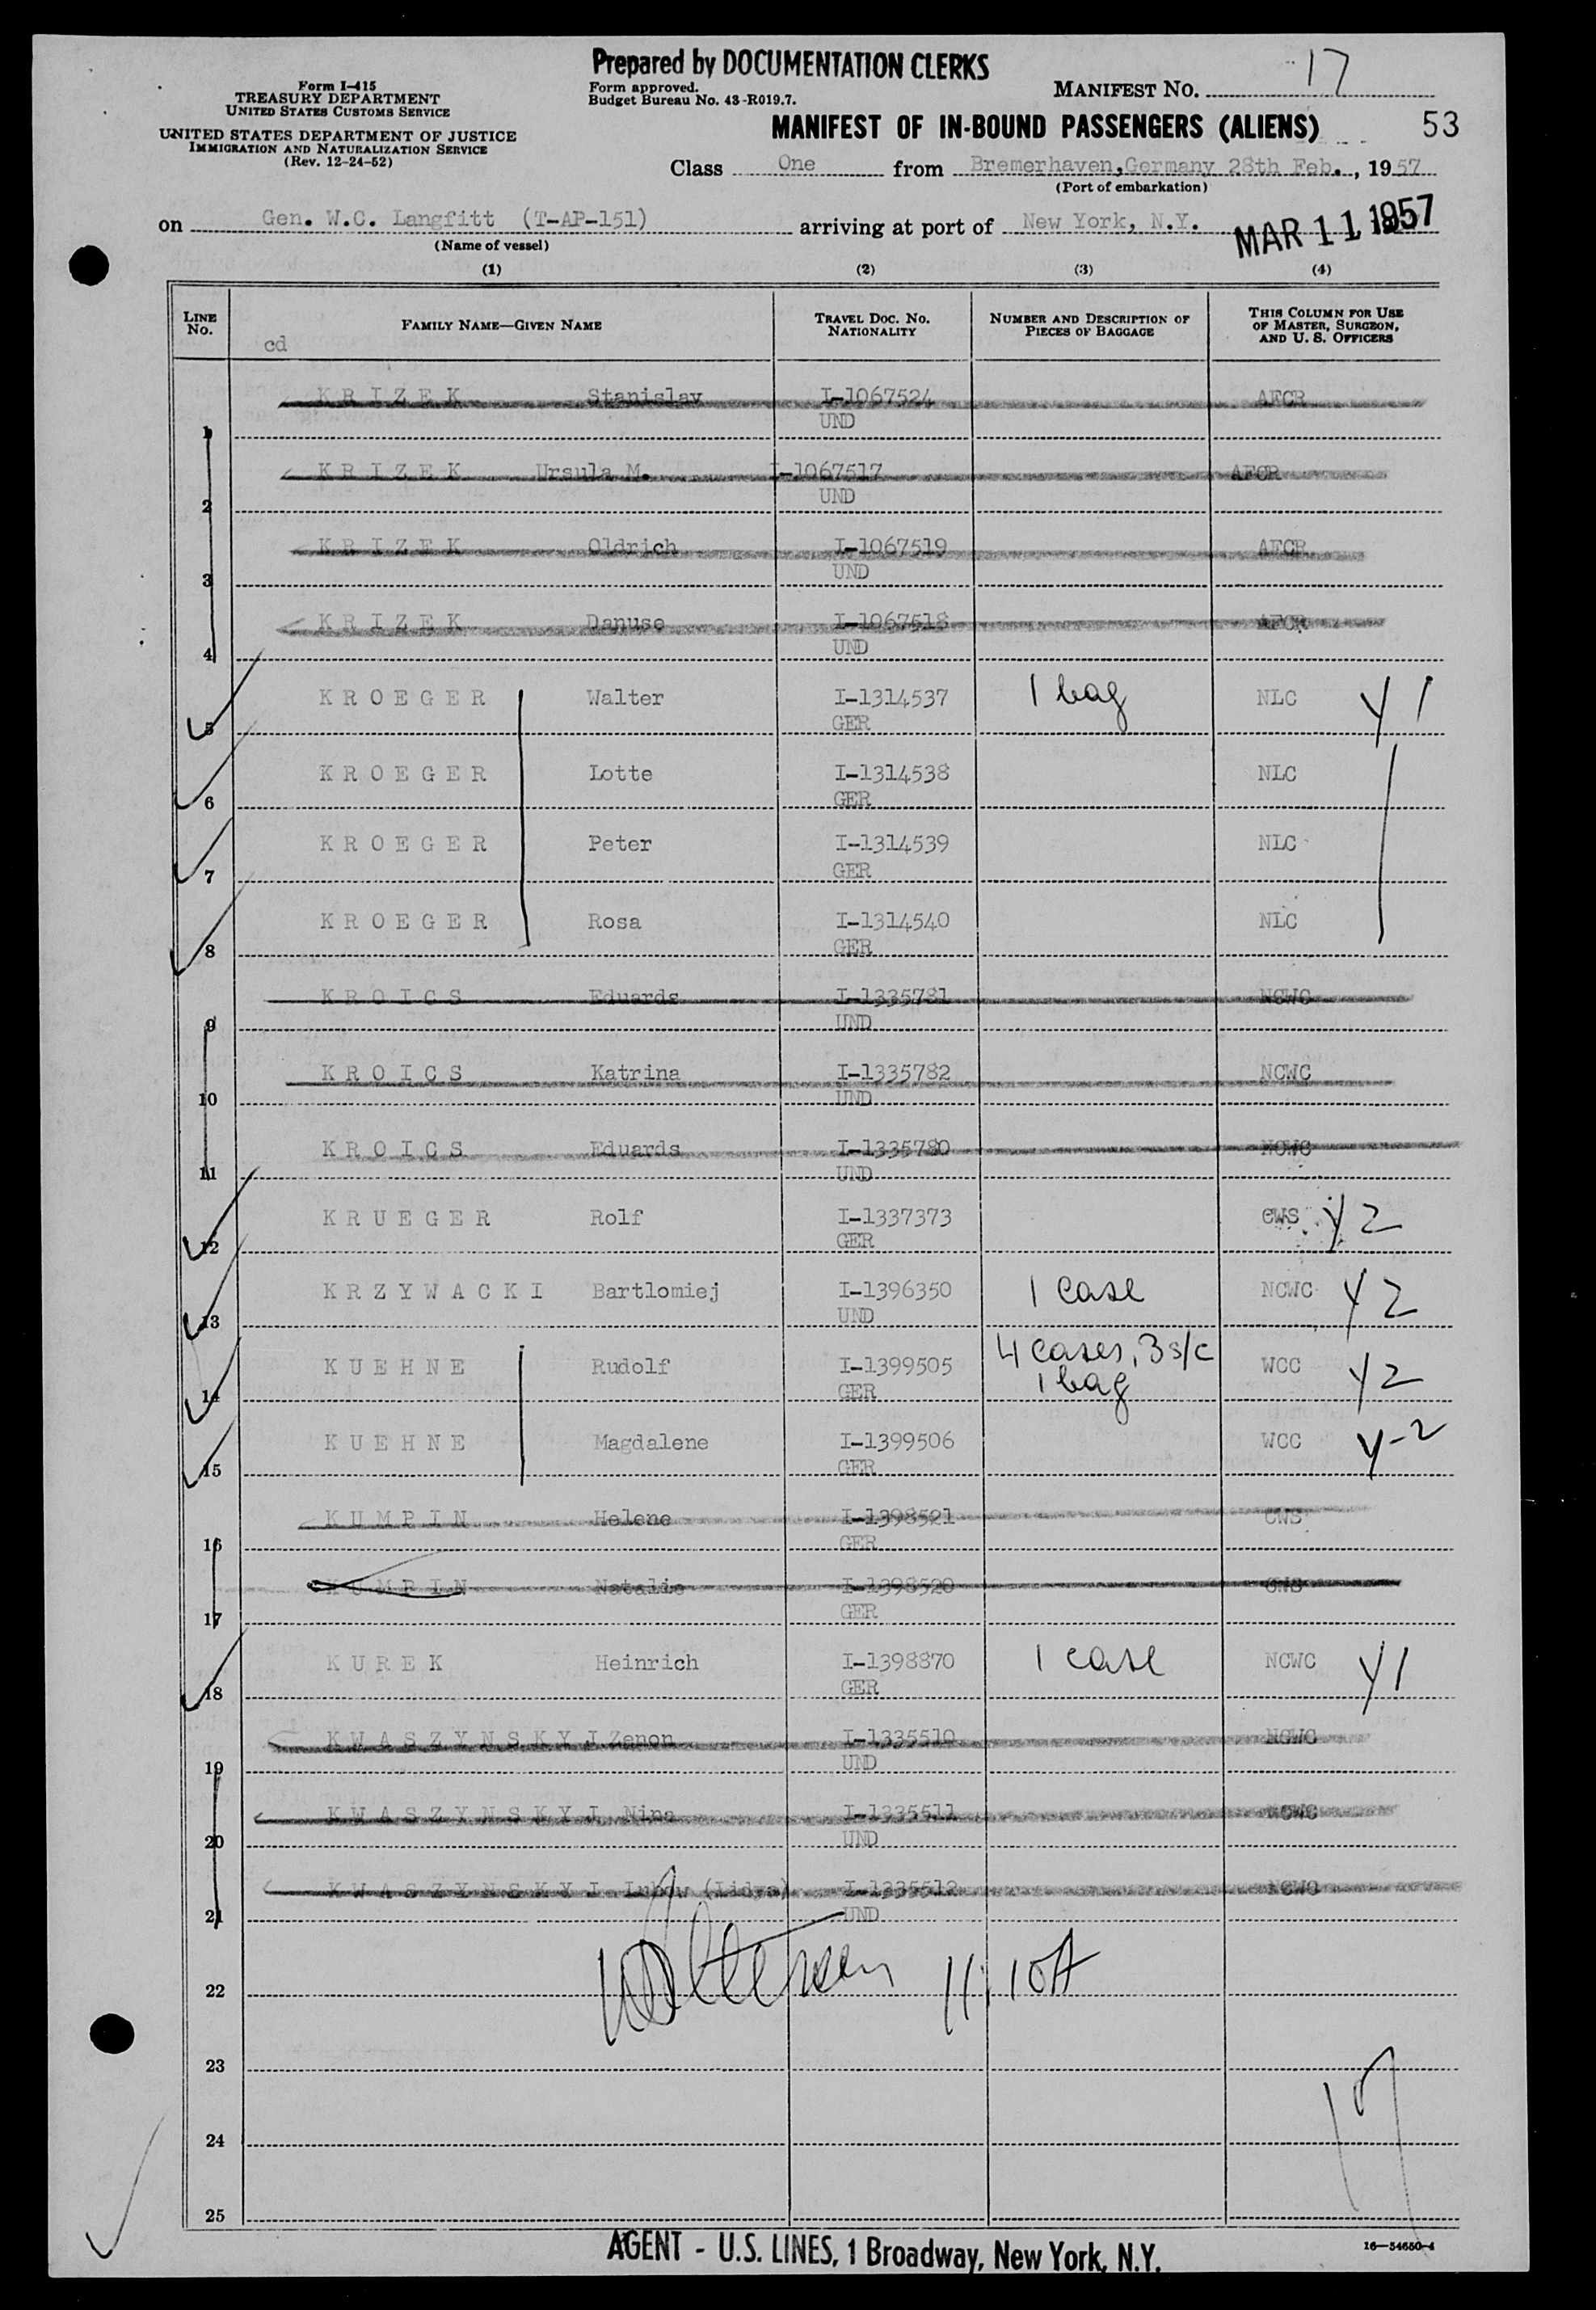 Prepared by DOCUMENTATION CLERKS
Form I-415
TREASURY DEPARTMENT
UNITED STATES CUSTOMS SERVICE
UNITED STATES DEPARTMENT OF JUSTICE
IMMIGRATION AND NATURALIZATION SERVICE
(Rev. 12-24-52)
Form approved.
Budget Bureau No. 43-R019.7.
MANIFEST NO. 17
MANIFEST OF IN-BOUND PASSENGERS (ALIENS) 53
Class One from Bremerhaven,Germany 28th Feb., 1957
(Port of embarkation)
on Gen. W.C. Langfitt (T-AP-151) arriving at port of New York, N.Y. MAR 11 1957
(Name of vessel)
(1) (2) (3) (4)
LINE NO. FAMILY NAME—GIVEN NAME TRAVEL DOC. NO. NATIONALITY NUMBER AND DESCRIPTION OF PIECES OF BAGGAGE THIS COLUMN FOR USE OF MASTER, SURGEON, AND U. S. OFFICERS
cd
KRIZEK Stanislav I-1067524 AFCR
1 UND
KRIZEK Ursula M. I-1067517 AFCR
2 UND
KRIZEK Oldrich I-1067519 AFCR
3 UND
KRIZEK Danuse I-1067518 AFCR
4 UND
KROEGER Walter I-1314537 1 bag NLC Y 1
5 GER
KROEGER Lotte I-1314538 NLC
6 GER
KROEGER Peter I-1314539 NLC
7 GER
KROEGER Rosa I-1314540 NLC
8 GER
KROICS Eduards I-1335781 NCWC
9 UND
KROICS Katrina I-1335782 NCWC
10 UND
KROICS Eduards I-1335780 NCWC
11 UND
KRUEGER Rolf I-1337373 CWS Y 2
12 GER
KRZYWACKI Bartlomiej I-1396350 1 case NCWC Y 2
13 UND
KUEHNE Rudolf I-1399505 4 cases, 3 s/c WCC Y 2
14 GER 1 bag
KUEHNE Magdalene I-1399506 WCC Y-2
15 GER
KUMPIN Helene I-1398521 CWS
16 GER
KUMPIN Natalie I-1398520 CWS
17 GER
KUREK Heinrich I-1398870 1 case NCWC Y 1
18 GER
KWASZYNSKYJ Zenon I-1335510 NCWC
19 UND
KWASZYNSKYJ Nina I-1335511 NCWC
20 UND
KWASZYNSKYJ Lubow (Lidya) I-1335512 NCWC
21 UND
22 11:10A
23
24
25
AGENT - U.S. LINES, 1 Broadway, New York, N.Y.
16—54650-4